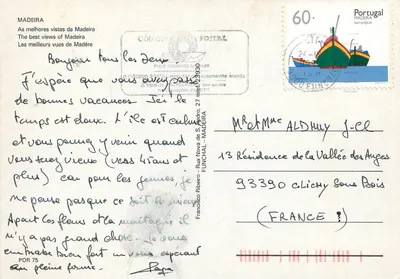 MADEIRA
As melhores vistas da Madeira
The best views of Madeira
Les meilleurs vues de Madère
Bonjour tous les deux.
J'espère que vous avez passé
de bonnes vacances. Ici le
temps est doux. L'île est calme
et vous pouvez y venir quand
vous serez vieux (vers 45 ans et
plus) car pour les jeunes, je
ne pense pas que ce soit le
Apart les fleurs et la montagne il
n'y a pas grand chose. Je vous
embrasse bien fort en vous espérant
en pleine forme.
Papa
POR 75
Francisco Ribeiro - Rua Nova de S. Pedro, 27
FUNCHAL - MADEIRA
CÓDIGO POSTAL
60.
Portugal
MADEIRA
Mr et Mme ALDHUY J-Cl
13 Résidence de la Vallée des Anges
93390 CLICHY Sous Bois
(FRANCE)